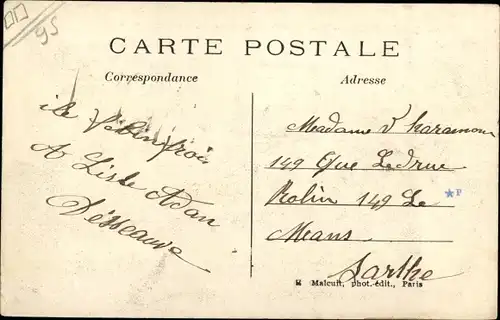 95
CARTE POSTALE
Correspondance
Adresse
ile
A Lisle Adan
Madame
149 Rue Ledrue
Rolin 149 Le
Mans
Sarthe
P
Malcuit, phot.-édit., Paris